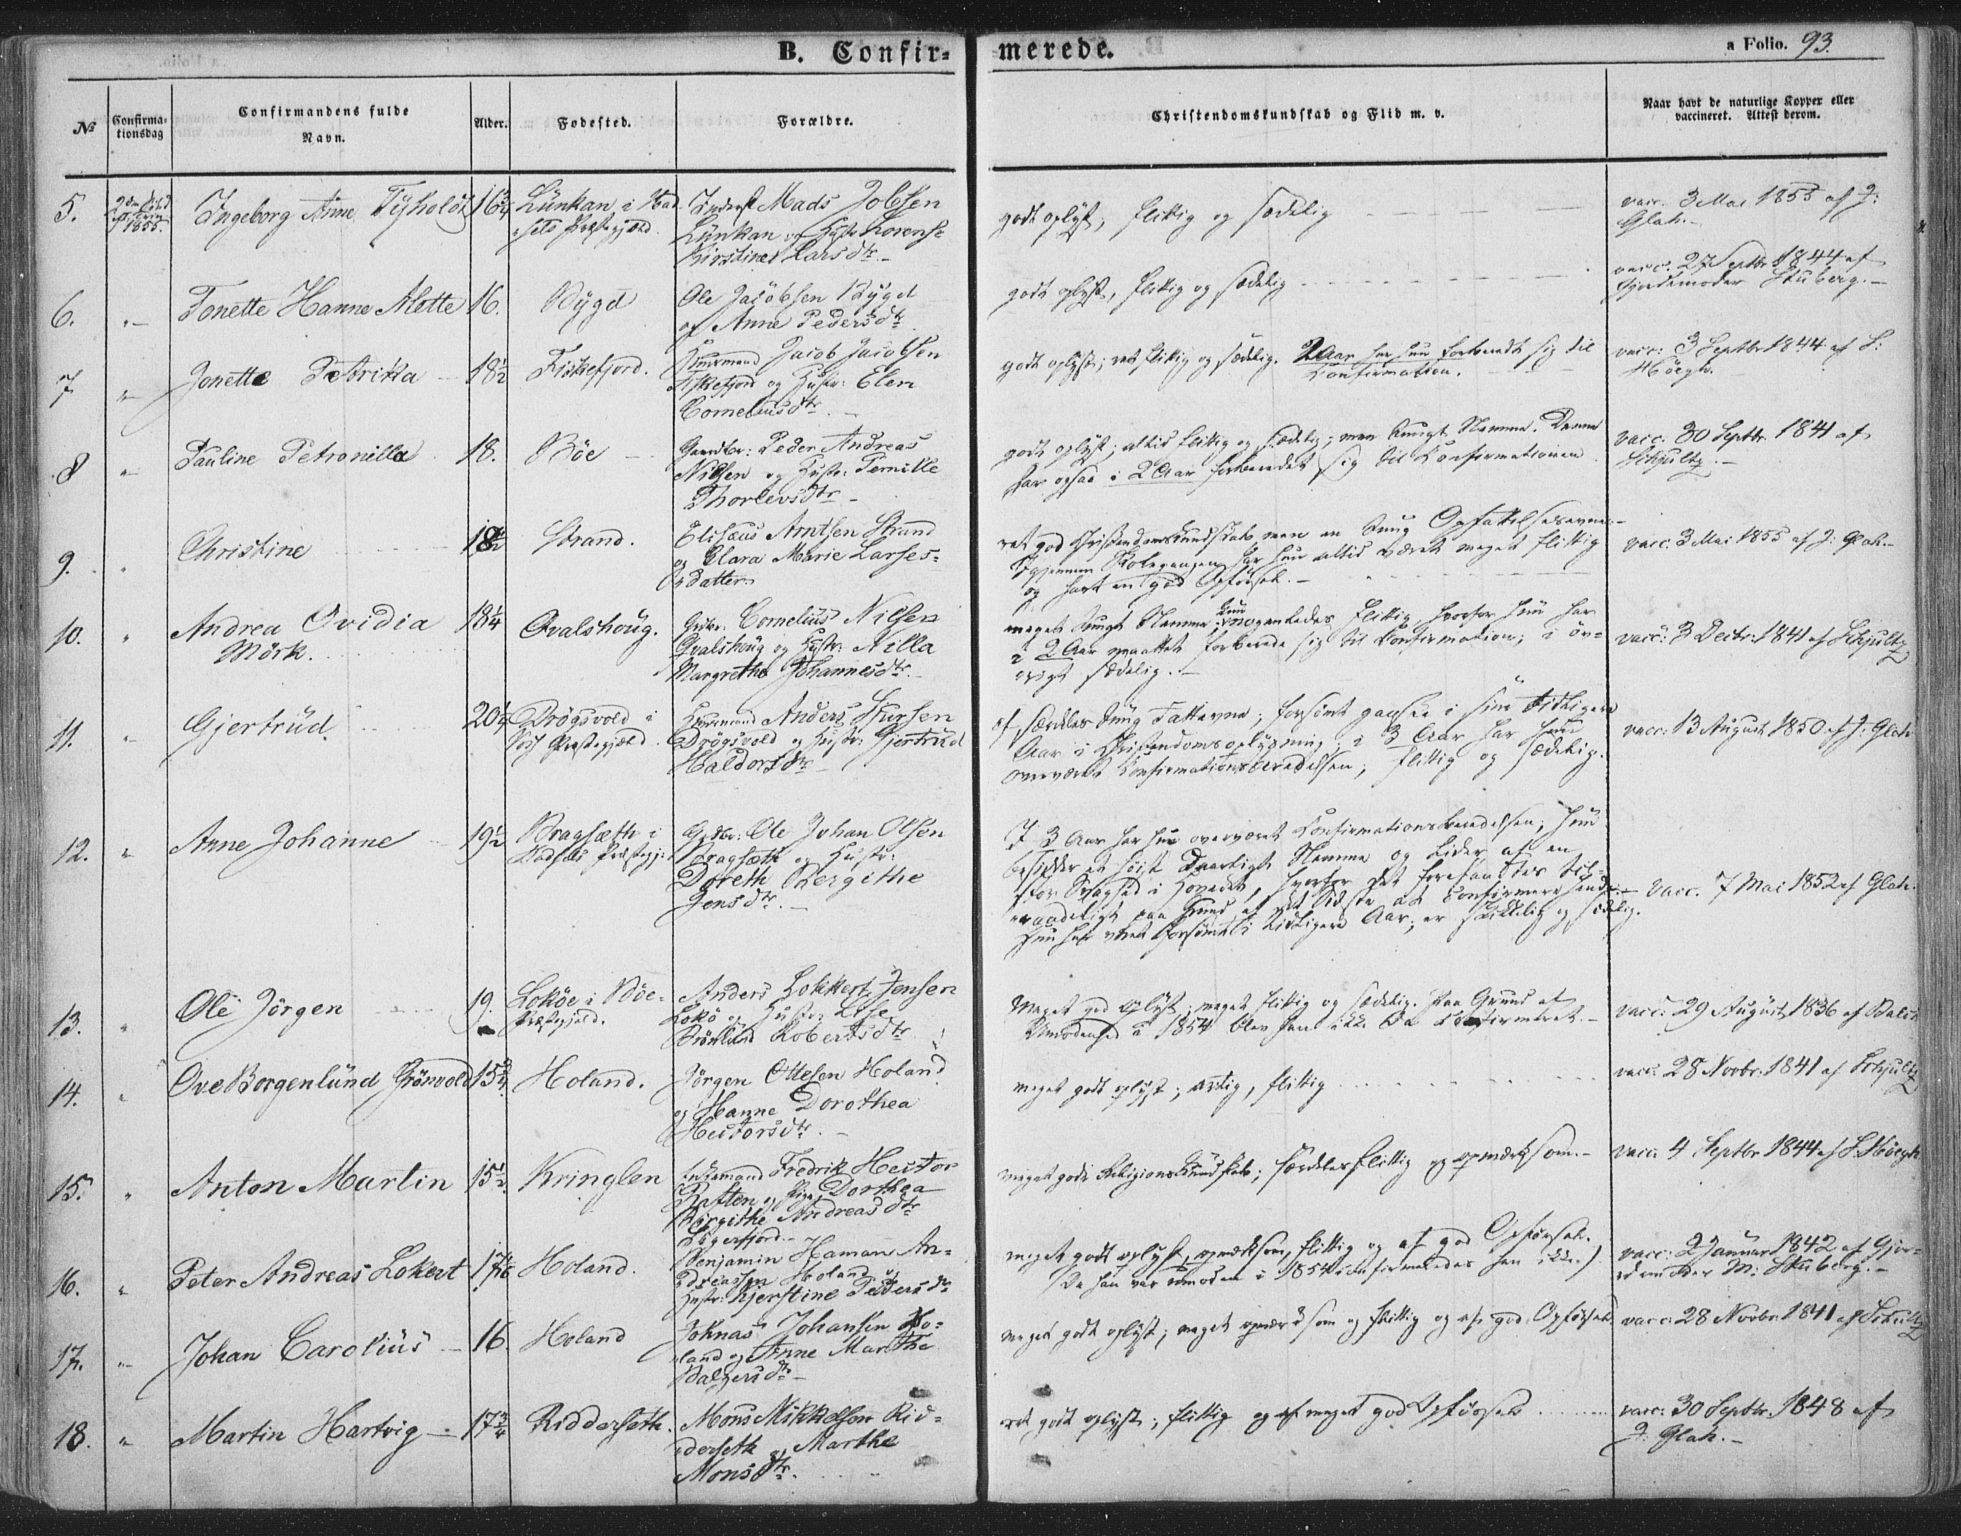 B. Confir-
merede.
a Folio. 93.
No
Confirma-
tionsdag
Confirmandens fulde
Navn.
Alder.
Fødested.
Forældre.
Christendomskundskab og Flid m. v.
Naar havt de naturlige Kopper eller
vaccineret. Attest derom.
5.
1855.
Ingeborg Anne
16 3/4
Lünkan i Had-
Præstegjeld.
Mads Jobsen
Lünkan og Hustr: Lorents
Kirstine Larsdtr.
godt oplyst, flittig og sædelig
vacc. 3 Mai 1855 af J:
Glah.
6.
Tonette Hanne Alette
16.
Bygd
Ole Jacobsen Bygd
og Anne Pedersdtr
godt oplyst, flittig og sædelig
vacc. 27 Septbr 1844 af
Gjordemoder Stuberg.
7.
Jonette Petrikka
18 1/2
Fiskefjord.
Huusmand Jacob Jacobsen
Fiskefjord og Hustr: Elen
Corneliusdtr.
godt oplyst; ret flittig og sædelig. 2 Aar har hun forberedt sig til
Confirmation.
vacc: 3 Septbr 1844 af S:
Høegh.
8
Pauline Petronilla
18.
Böe
Gaardbr: Peder Andreas
Nilsen og Hustr: Pernille
Thorlevsdtr
godt oplyst; altid flittig og sædelig; men svagt Nemme. Denne
har ogsaa i 2 Aar forberedet sig til Confirmationen
vacc: 30 Septbr. 1841 af
Schjultz.
9.
Christine
18 1/2
Strand.
Elisæus Arntsen Strand
og Clara Marie Larses-
datter
ret god Christendomskundskab, men en svag Opfattelsesevne
igjennem Skolegangen har hun altid været meget flittig
og havt en god Opførsel.
vacc. 3 Mai 1855 af J: Glah.
10.
Andrea Ovidia
Mörk.
18 1/4
Qvalshoug.
Grbr: Cornelius Nilsen
Qvalshoug og Hustr: Nilla
Margrethe Johannesdtr.
meget svagt Nemme flittig hvorfor hun har
i 2 Aar maattet forberede sig til Confirmation; i öv-
rigt sædelig.
vacc: 3 Decbr. 1841 af Schjultz
11.
Gjertrüd.
20 1/4
Drögsvold i
Præstegjeld.
Huusmand Anders Sjursen
Drögsvold og Hustr: Gjertrüd
Haldorsdtr
af særdeles svag Fatteevne; forsömt ganske i sine tidligere
Aar i Christendomsoplysning; i 3 Aar har hun
overværet Confirmationsberedelsen; flittig og sædelig.
vacc: 13 August 1850 af J: Glah
12.
Anne Johanne
19 1/2
Bragsæth i
Hadsels Præstegj:
Grdbr: Ole Johan Olsen
Bragsæth og Hustr:
Doreth Bergithe
Jensdtr.
I 3 Aar har hun overværet Confirmationsberedelsen; hun
besidder et höist daarligt Nemme og lider af en
stor Svaghed i Hovedet, hvorfor det foresandtes til-
raadeligt paa Grund af at confirmere hende.
Hun har været forsömt i tidligere Aar; er skikkelig og sædelig.
vacc. 7 Mai 1852 af Glah.
13.
Ole Jörgen
19.
Loköe i Böe-
Præstegjeld.
Anders Lokkert Jensen
Lokö og Hustr: Else
Brönlund Robertsdtr
Meget god oplyst; meget flittig og sædelig. Paa Grund af
Umodenhed i 1854 blev han ikke da confirmeret.
vacc: 29 August 1836 af
14.
Ove Borgenlünd Grönvold
15 3/4
Holand.
Jörgen Ottesen Holand
og Hanne Dorothea
Hectorsdtr.
meget godt oplyst; artig, flittig
vacc: 28 Novbr. 1841 af Schjultz
15.
Anton Martin
15 1/2
Kringlen
Fredrik Hector
og Pige Dorthea
Birgithe Andreasdtr
meget god Religionskundskab; særdeles flittig og opmærksom.
vacc. 4 Septbr 1844 af S. Höegh
16.
Peter Andreas Lokert
17
Holand.
Benjamin Haman An-
dreassen Holand og
Hustr: Kjerstine Pedersdtr
meget godt oplyst, opmærksom, flittig og af god Opförsel.
(Da han var umoden i 1854 confirmeredes han ikke.)
vacc: 2 Januar 1842 af Gjor-
demoder M: Stuberg.
17.
Johan Carolius
16.
Holand
Johnas Johansen Ho-
land og Anne Marthe
Balzersdtr
meget godt oplyst; meget opmærksom og flittig og af god Opförsel
vacc: 28 Novbr. 1841 af Schultz
18.
Martin Hartvig
17 3/4
Riddersæth.
Mons Mikkelsen Rid-
dersæth og Marthe
Monsdtr.
ret godt oplyst; flittig og af meget god Opförsel
vacc: 30 Septbr. 1848 af
J: Glah.